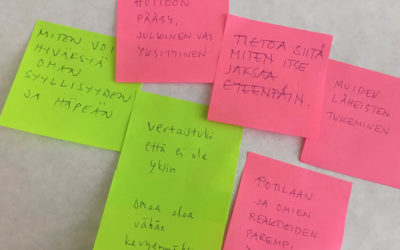 MITEN VOI
HYVÄKSYÄ
OMAN
SYYLLISYYDEN
JA HÄPEÄN
HOITOON
PÄÄSY,
JULKINEN VAI
YKSITYINEN
TIETOA SIITÄ
MITEN ITSE
JAKSAA
ETEENPÄIN.
MUIDEN
LÄHEISTEN
TUKEMINEN
Vertaistuki
että ei ole
yksin
omaa oloa
vähän
POTILAAN
JA OMIEN
REAKTIOIDEN
PAREMPI